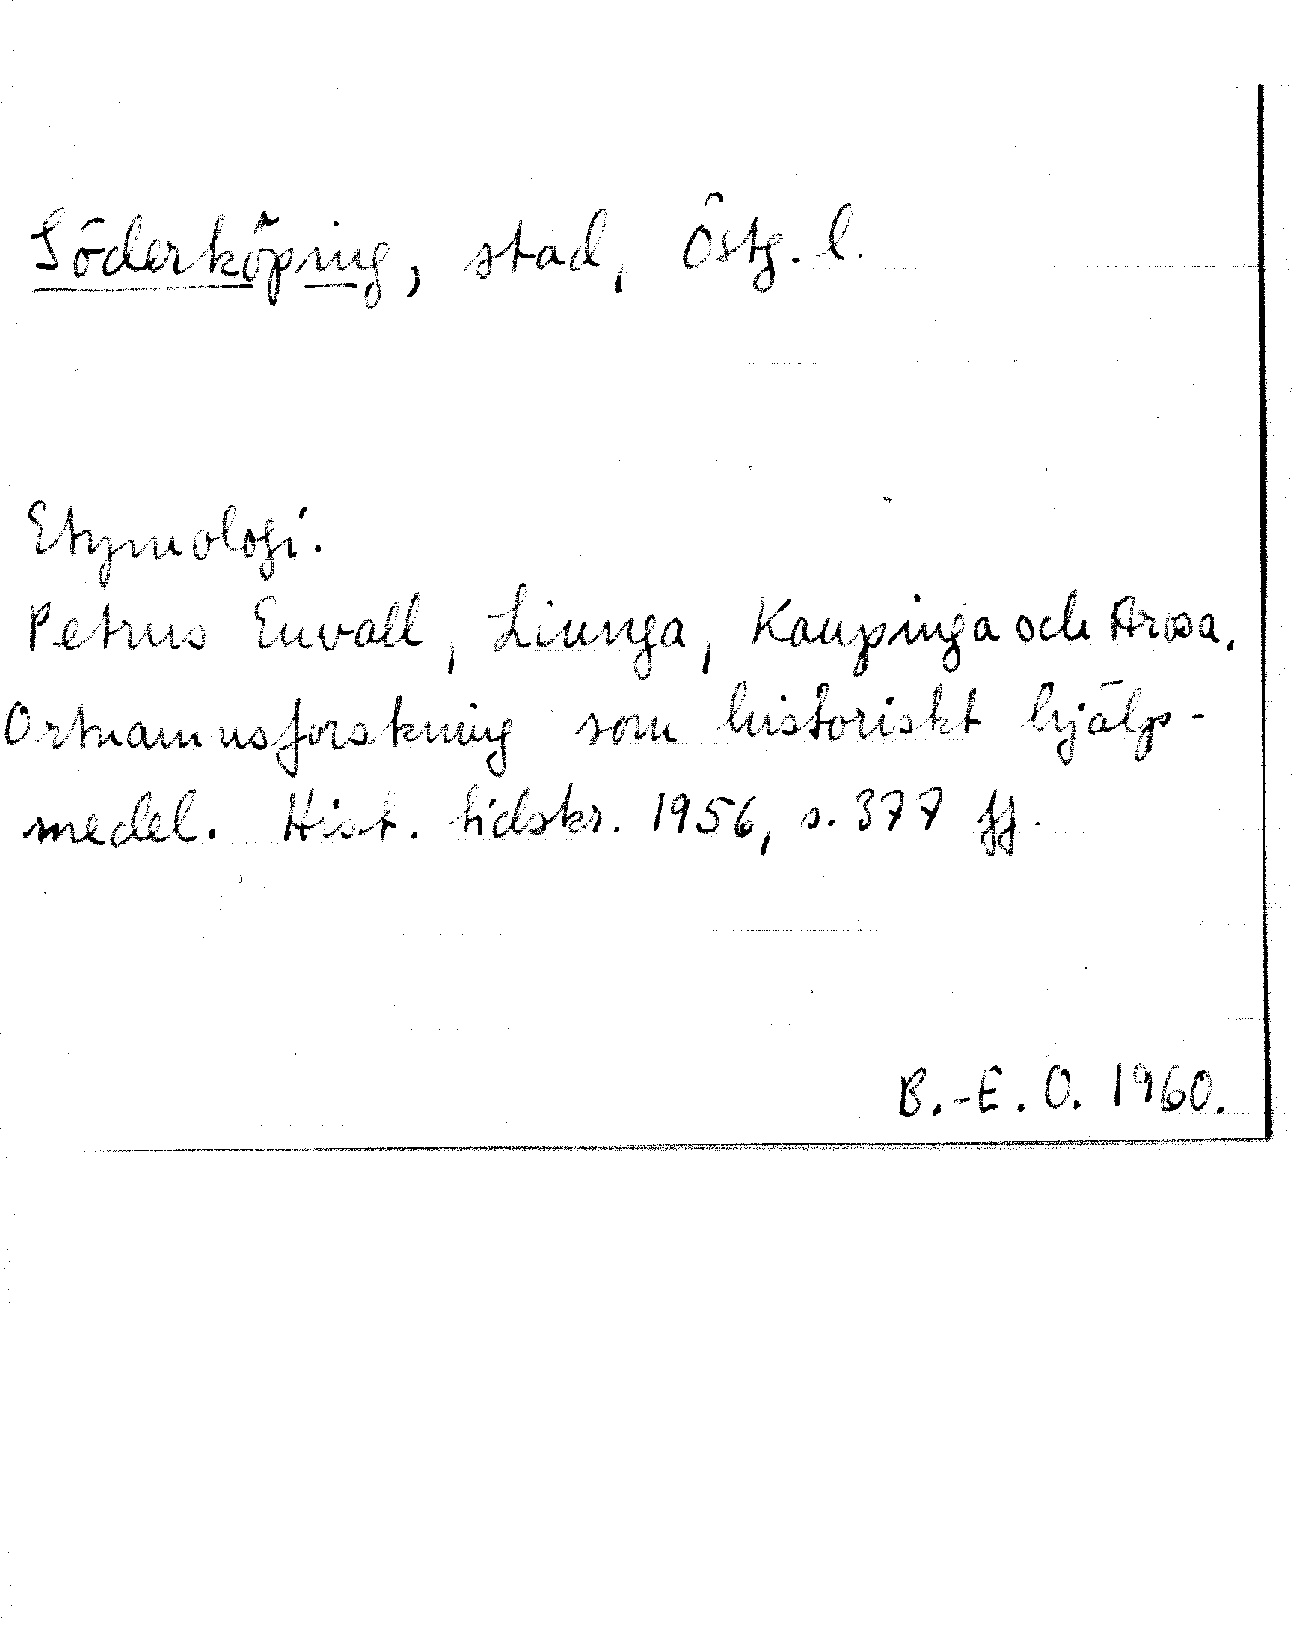 Söderköping, stad, Östg. l.
Etymologi.
Petrus Envall, Liunga, Kaupinga och Arosa.
Ortnamnsforskning som historiskt hjälp-
medel. Hist. tidskr. 1956, s. 377 ff.
B.-E. O. 1960.